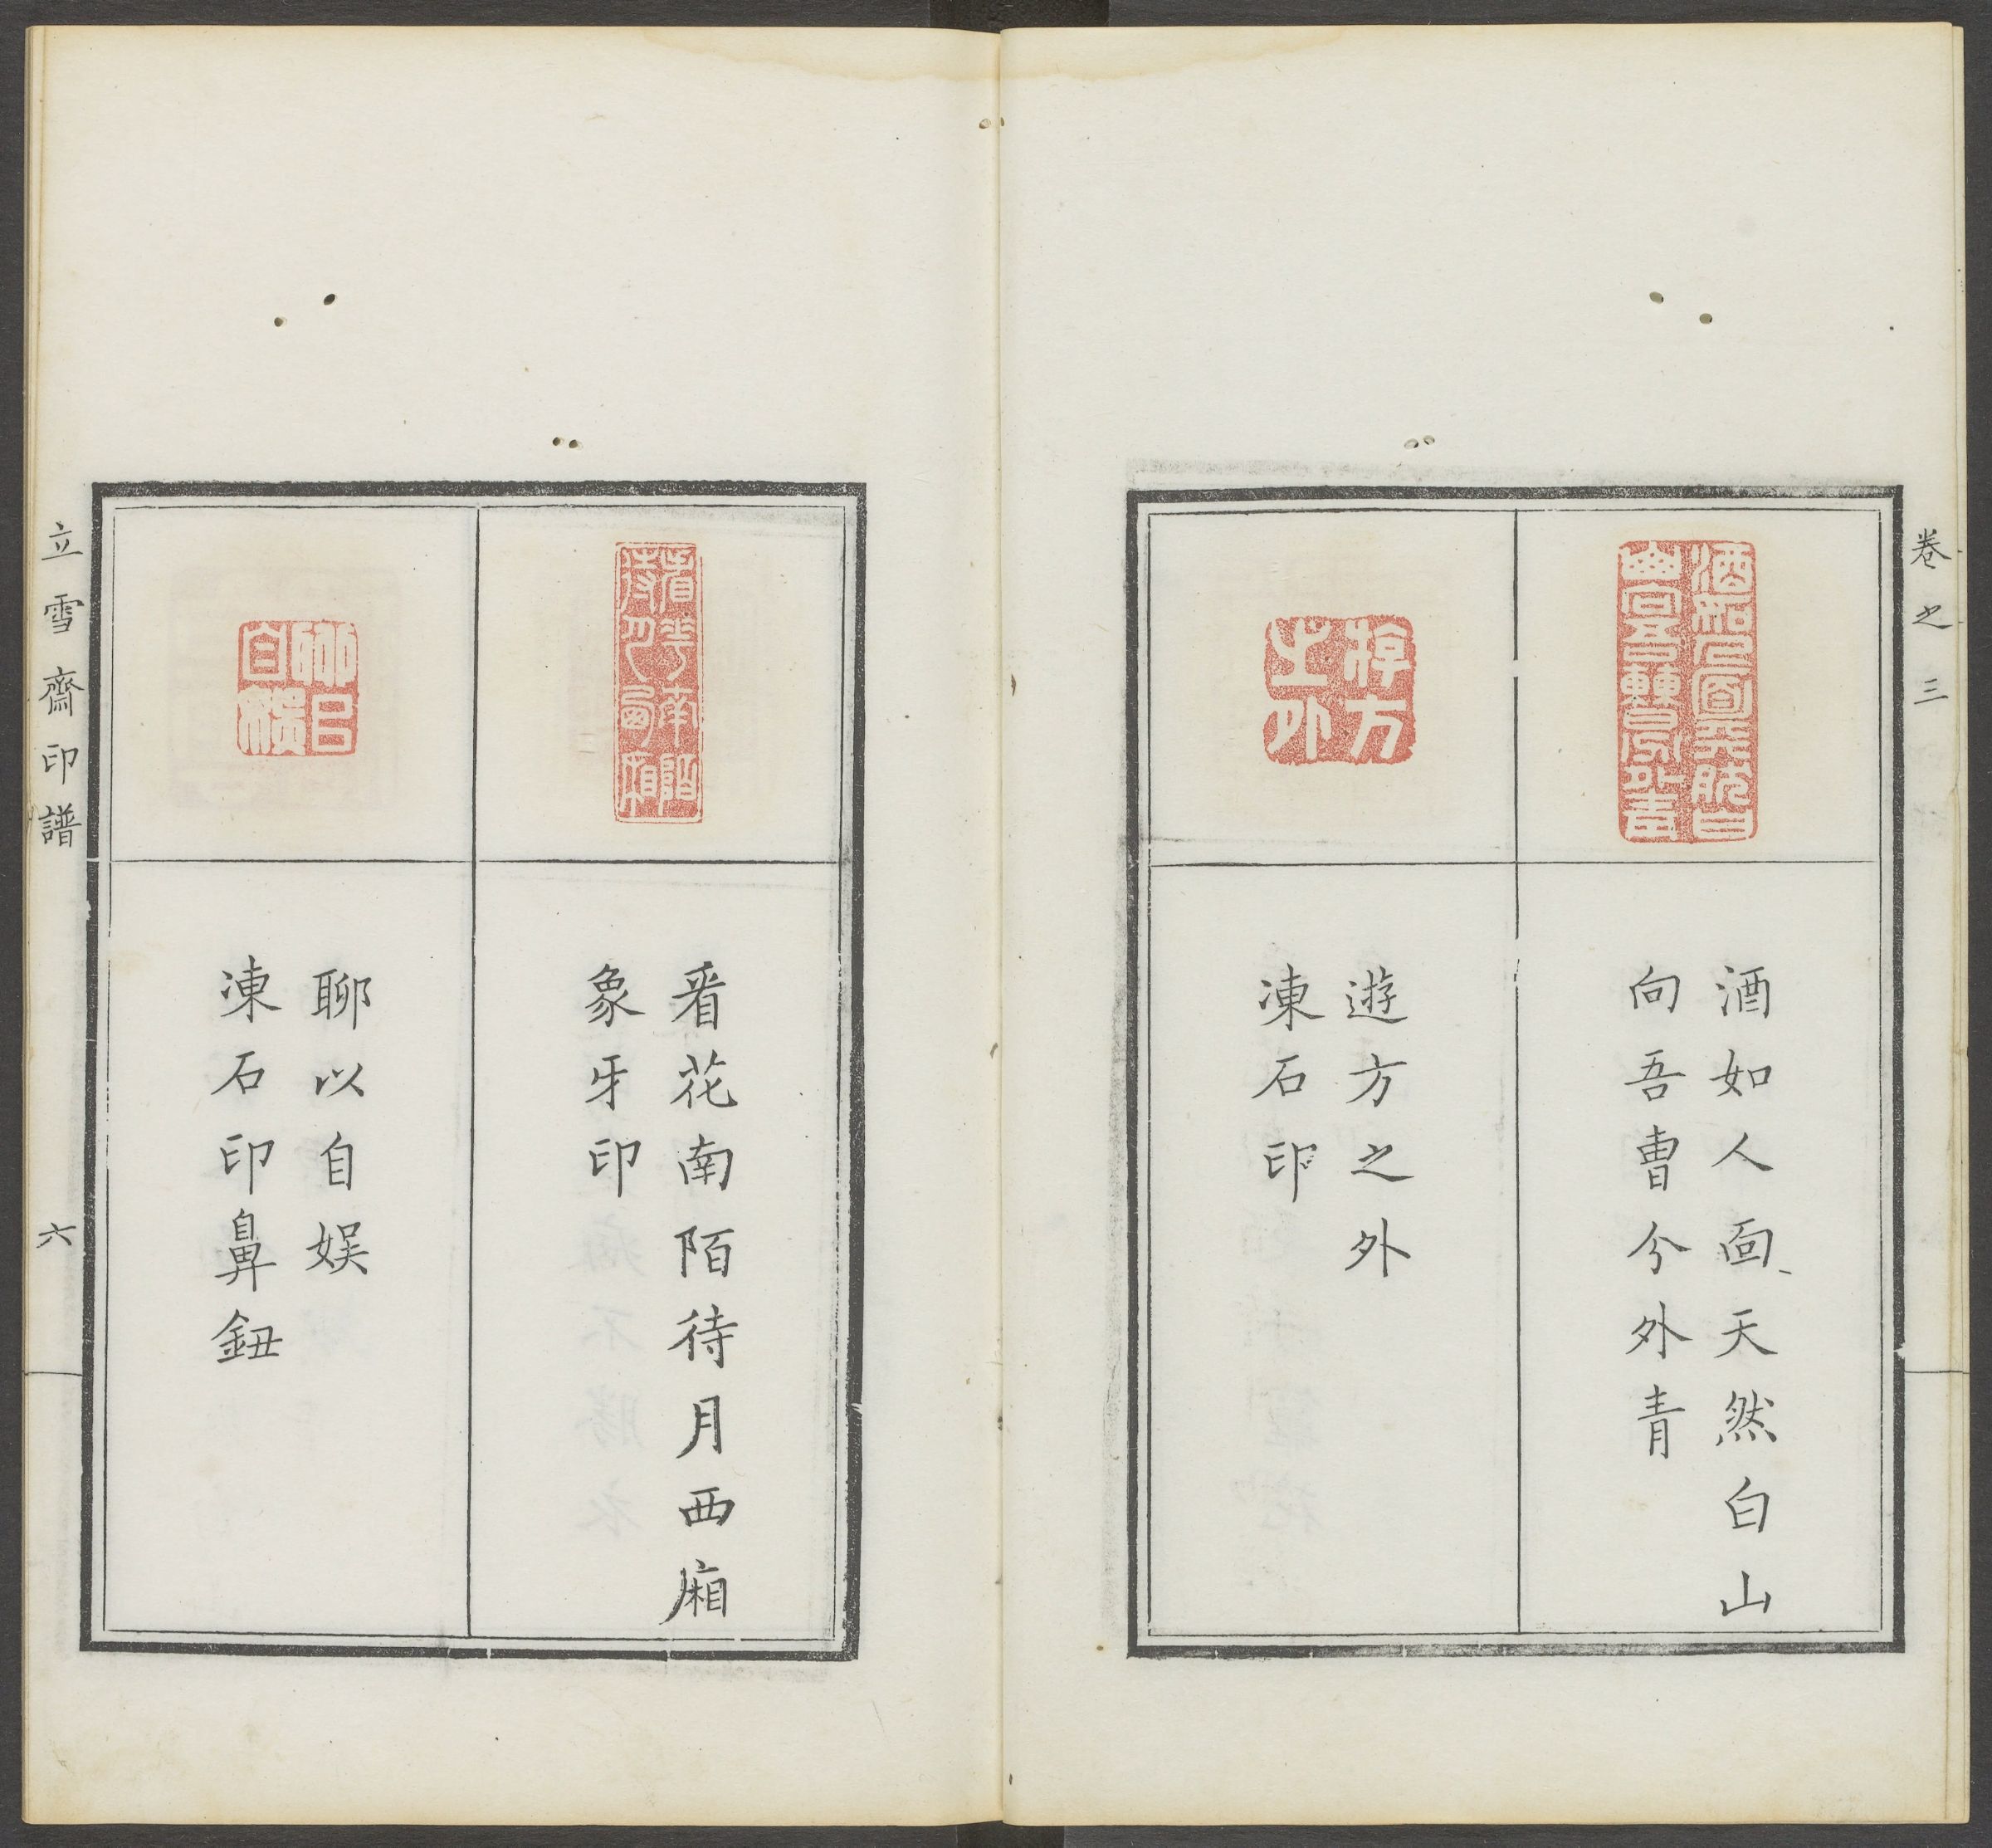 卷之三
酒如人面天然白山
向吾曹分外青
遊方之外
凍石印
看花南陌待月西廂
象牙印
聊以自娱
凍石印鼻鈕
立雪齋印譜
六